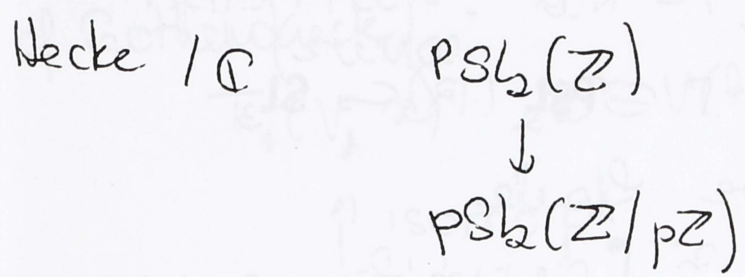 Hecke / ℂ PSL₂(ℤ)
↓
PSL₂(ℤ/pℤ)